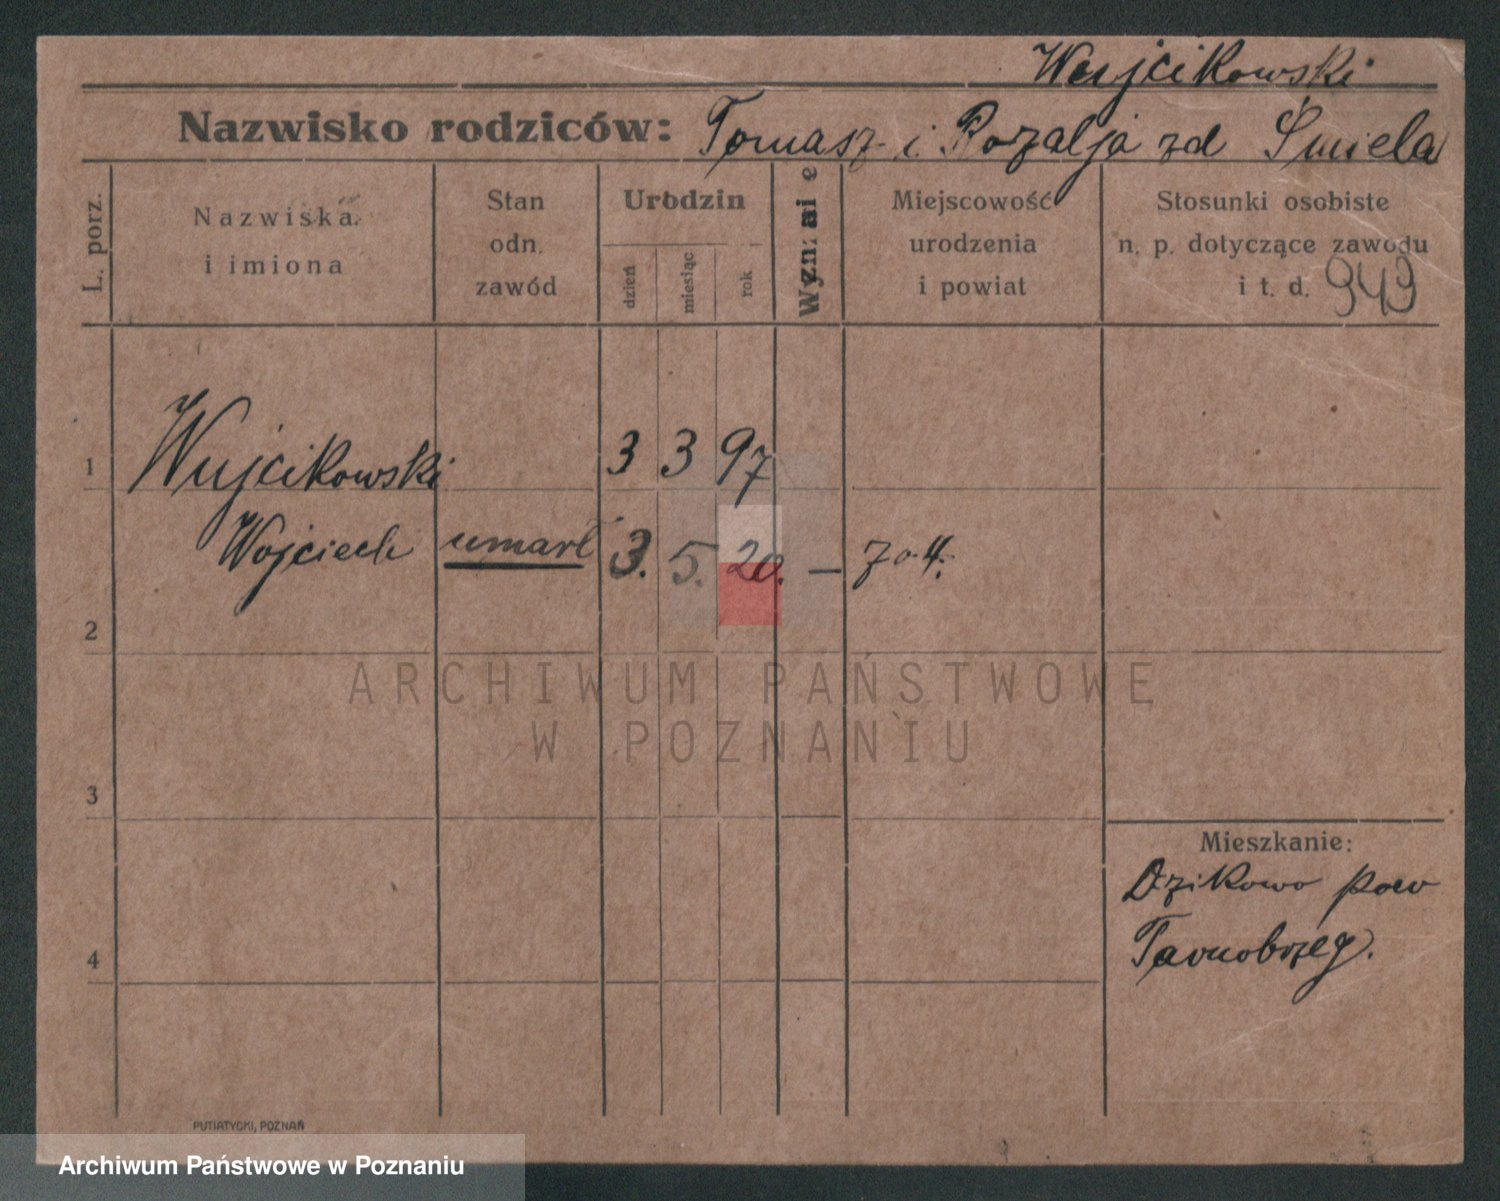 Wujcikowski
Nazwisko rodziców: Tomasz i Rozalja zd Śmiela
L. porz.
Nazwiska
i imiona
Stan
odn.
zawód
Urodzin
dzień
miesiąc
rok
Wyznanie
Miejscowość
urodzenia
i powiat
Stosunki osobiste
n. p. dotyczące zawodu
i t. d. 949
1 Wujcikowski 3 3 97
Wojciech umarł 3. 5. 20. —
2
ARCHIWUM PAŃSTWOWE
W POZNANIU
3
Mieszkanie:
Dzikowo pow
Tarnobrzeg.
4
PUTIATYCKI, POZNAŃ
Archiwum Państwowe w Poznaniu